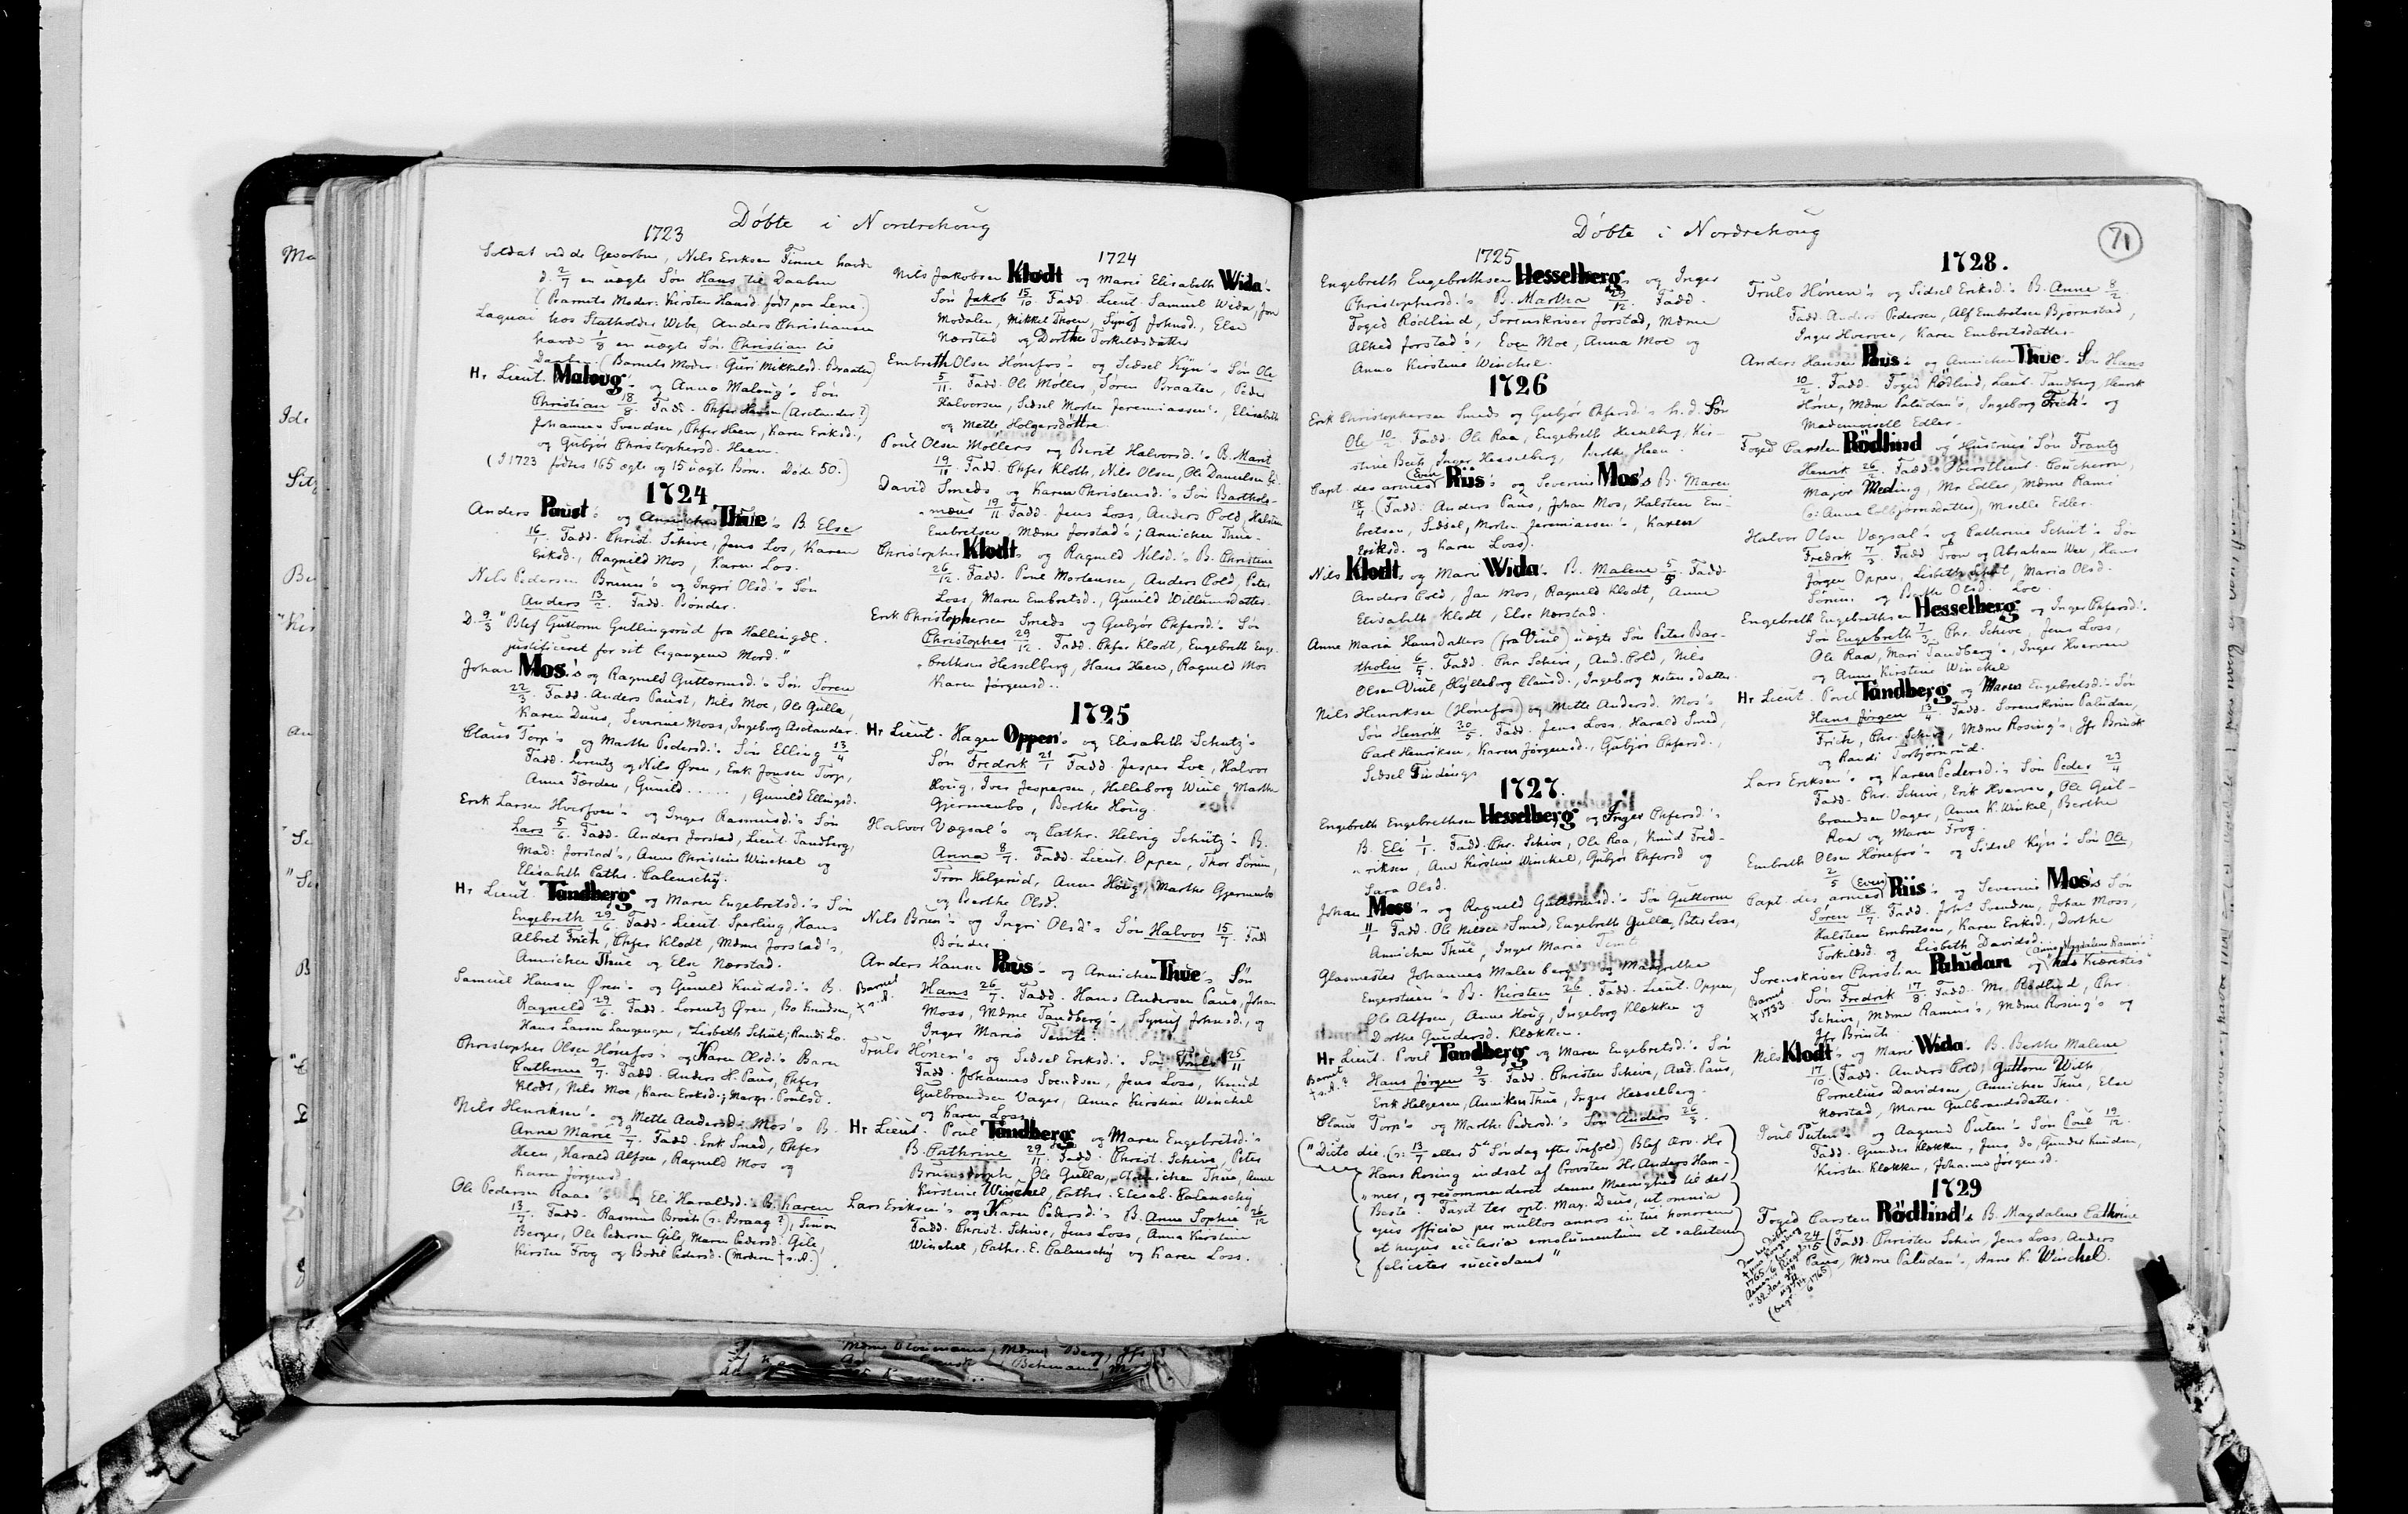 Døbte i Nordrehoug
1723
Soldat ved de Gevorbne, Nils Eriksen Finne havde
d. 2/7 en uægte Søn Hans til Daaben
(Barnets Moder: Kirsten Hansd. født paa Lene.)
Laquai hos Statholder Wibe, Anders Christiansen
havde 1/8 en uægte Søn Christian til
Daaben. (Barnets Moder: Guri Mikkelsd. Braaten)
Hr Lieut. Maloug's og Anna Maloug's Søn
Christian 18/8. Fadd. Chfer Heen (Arctander?)
Johannes Svendsen, Chfer Heen, Karen Eriksd.,
og Gubjør Christophersd. Heen.
(I 1723 fødtes 165 ægte og 15 uægte Børn. Døde 50.)
1724
Anders Paust's og Annichen Thue's B. Else
16/1. Fadd. Christ. Schive, Jens Los, Karen
Eriksd., Ragnild Mos, Karen Los.
Nils Pedersen Bruun's og Ingri Olsd.'s Søn
Anders 13/2. Fadd. Bønder.
D. 9/3 "Blef Guttorm Gullingsrud fra Hallingdl.
justificeret for sit begangene Mord."
Johan Mos's og Ragnild Guttormsd.'s Søn Søren
22/3. Fadd. Anders Paust, Nils Moe, Ole Gulla,
Karen Duus, Severine Moss, Ingeborg Arctander.
Claus Torp's og Marthe Pedersd.'s Søn Elling 13/4
Fadd. Lorentz og Nils Øren, Erik Jonsen Torp,
Anne Færden, Gunild ......, Gunild Ellingsd.
Erik Larsen Hverfven's og Inger Rasmusd.'s Søn
Lars 5/6. Fadd. Anders Jorstad, Lieut. Tandberg,
Mad: Jorstad's, Anne Christine Winchel og
Elisabeth Cathr. Calenschÿ.
Hr Lieut. Tandberg og Maren Engebretsd.'s Søn
Engebreth 29/6. Fadd. Lieut. Sperling, Hans
Albret Frich, Chfer Klodt, Mdme Jorstad's,
Annichen Thue og Else Nærstad.
Samuel Hansen Øren's og Gunild Knudsd.'s B.
Ragnild 29/6. Fadd. Lorentz Øren, Bo Knudsen,
Hans Larsen Laugengen, Lisbeth Schüt, Randi Lo.
Christopher Olsen Hønefos's og Karen Olsd.'s Barn
Cathrine 9/7. Fadd. Anders H. Paus, Chfer
Klodt, Nils Moe, Karen Eriksd., Margr. Poulsd.
Nils Henriksen's og Mette Andersd. Mos's B.
Anne Marie 9/7. Fadd. Erik Smed, Chfer
Heen, Harald Alfsen, Ragnild Mos og
Karen Jørgensd.
Ole Pedersen Raae's og Eli Haraldsd.'s B. Karen
13/7. Fadd. Rasmus Broch (ɔ: Braag?), Simon
Berger, Ole Pedersen Gile, Maren Pedersd. Gile,
Kirsten Frog og Bodil Pedersd. (Moderen † s.d.)
1724
Nils Jakobsen Klodt og Marie Elisabeth Wida's
Søn Jakob 15/10. Fadd. Lieut. Samuel Wida, Jon
Modalen, Mikkel Thoen, Synøf Johnsd., Else
Nærstad og Dorthe Torkildsdatter
Embreth Olsen Hønefos's og Sidsel Kÿn's Søn Ole
5/11. Fadd. Ole Møller, Søren Braaten, Peder
Halvorsen, Sidsel Morten Jeremiassen's, Elisabeth
og Mette Holgersdøttre.
Poul Olsen Møllers og Berit Halvorsd.'s B. Marit
19/11. Fadd. Chfer Kloth, Nils Olsen, Ole Danielsen
David Smeds og Karen Christensd.'s Søn Bartholo-
"mæus 19/11 Fadd. Jens Loss, Anders Cold, Halsten
Embretsen, Mdme Jorstad's, Annichen Thue.
Christopher Klodt's og Ragnild Nilsd.'s B. Christine
26/12. Fadd. Poul Mortensen, Anders Cold, Peter
Loss, Maren Embretsd., Gunild Willumsdatter.
Erik Christophersen Smeds og Gubjør Chfersd.'s Søn
Christopher 29/12. Fadd. Chfer Klodt, Engebreth Enge-
"brethsen Hesselberg, Hans Heen, Ragnild Mos
Karen Jørgensd..
1725
Hr Lieut. Hagen Oppen's og Elisabeth Schutz's
Søn Fredrik 21/1 Fadd. Jesper Loe, Halvor
Houg, Iver Jespersen, Hilleborg Wiul, Marthe
Gjermenbo, Berthe Houg.
Halvor Vægsal's og Cathr. Helvig Schütz's B.
Anna 8/7. Fadd. Lieut. Oppen, Thor Sørum,
Tron Helgerud, Anne Houg, Marthe Gjermenbo
og Berthe Olsd.
Nils Brun's og Ingri Olsd's Søn Halvor 15/7. Fadd
Bønder
Anders Hansen Paus's og Annichen Thue's Søn
Barnet † s.d.
Hans 26/7. Fadd. Hans Andersen Paus, Johan
Moss, Mdme Tandberg's, Synnif Johnsd., og
Inger Maria Temte.
Truls Hønen's og Sidsel Eriksd.'s Søn Truls 25/11
Fadd. Johannes Svendsen, Jens Loss, Knud
Gulbrandsen Vager, Anne Kirstine Winchel
og Karen Loss.
Hr Lieut. Poul Tandberg og Maren Engebretsd.'s
B. Cathrine 29/11. Fadd. Christ. Schive, Peter
Ole Gulla, Annichen Thue, Anne
Kirstine Winchel, Cathr. Elisab. Calenschÿ
Lars Eriksen's og Karen Pedersd.'s B. Anne Sophie 26/12
Fadd. Christ. Schive, Jens Loss, Anna Kirstine
Winchel, Cathr. E. Calenschÿ og Karen Loss.
Døbte i Nordrehoug
71
1725
Engebreth Engebrethsen Hesselberg's og Inger
Christophersd.'s B. Martha 29/12. Fadd.
Foged Rødlind, Sorenskriver Jorstad, Mdme
Alhed Jorstad's, Even Moe, Anna Moe og
Anna Kirstine Winchel.
1726
Erik Christophersen Smeds og Gubjør Chfersd.'s h.d. Søn
Ole 10/2. Fadd. Ole Raa, Engebreth Hesselberg, Kir-
stine Bech, Inger Hesselberg, Berthe Heen.
Capt. des armes (Even) Riis's og Severine Mos's B. Maren
18/4 (Fadd: Anders Paus, Johan Mos, Halsten Em-
bretsen, Sidsel, Morten Jeremiassen's, Karen
Eriksd. og Karen Loss).
Nils Klodt's og Mari Wida's B. Malene 5/5. Fadd.
Anders Cold, Jan Mos, Ragnild Klodt, Anne
Elisabeth Klodt, Else Nærstad.
Anne Maria Hansdatters (fra Viul) uægte Søn Peter Bar-
tholin 6/5. Fadd. Chr Schive, And. Cold, Nils
Olsen Viul, Hÿlleborg Clausd., Ingeborg Kstensdatter.
Nils Henriksen (Hønefos) og Mette Andersd. Mos's
Søn Henrik 30/5. Fadd. Jens Loss, Harald Smed,
Carl Henriksen, Karen Jørgensd., Gubjør Chfersd.,
Sidsel Tindings
1727.
Engebreth Engebrethsen Hesselberg og Inger Chfersd.'s
B. Eli 1/1. Fadd. Chr. Schive, Ole Raa, Knud Fred-
"riksen, Ane Kirstine Winckel, Gubjør Chfersd og
Sara Olsd.
Johan Moss's og Ragnild Guttormsd.'s Søn Guttorm
11/1 Fadd. Ole Nilsen Smed, Engebreth Gulla, Peter Loss,
Annichen Thue, Inger Maria Temte
Glasmester Johannes Malenberg og Margrethe
Engerstuen's B. Kirsten 26/1. Fadd. Lieut. Oppen,
Ole Alfsen, Anne Houg, Ingeborg Klækken og
Dorthe Gundersd. Klækken.
Hr Lieut. Povel Tandberg og Maren Engebretsd.'s Søn
Barnet † s.d.?
Hans Jørgen 9/3. Fadd. Christen Schive, And. Paus,
Erik Helgesen, Anniken Thue, Inger Hesselberg.
Claus Torp's og Marthe Pedersd.'s Søn Anders 26/3.
("Dicto die (ɔ: 13/7 eller 5te Søndag efter Trefold) Blef Arv. Hr
Hans Rosing indsat af Provsten Hr Anders Ham-
"mer, og recommenderet denne Menighed til det
Beste. Faxit ter opt. Max. Deus, ut omnia
ejus officia per multos annos in tui honorem
et hujus ecclesiæ emolumentum et salutem
feliciter succedant"
1728.
Truls Hønen's og Sidsel Eriksd.'s B. Anne 8/2
Fadd. Anders Pedersen, Alf Embretsen Bjørnstad,
Inger Hverven, Karen Embretsdatter.
Anders Hansen Paus's og Annichen Thue's Søn Hans
10/2. Fadd. Foged Rødlind, Lieut. Tandberg, Henrik
Hønen, Mdme Paludan's, Ingeborg Frich's og
Mademoiselle Edler.
Foged Carsten Rödlind og Hustrues Søn Frantz
Henrik 26/2. Fadd. Oberstlieut. Coucheron,
Major Meding, Mr Edler, Mdme Rami
(ɔ: Anna Colbjørnsdatter), Mselle Edler.
Halvor Olsen Vægsal's og Cathrine Schüt's Søn
Fredrik 7/3. Fadd Tron og Abraham Wee, Hans
Jørgen Oppen, Lisbeth Schüt, Maria Olsd.
Sørum og Berthe Olsd. Loe.
Engebreth Engebrethsen Hesselberg og Inger Chfersd.'s
Søn Engebreth 7/3. Chr. Schive, Jens Loss,
Ole Raa, Mari Tandberg's, Inger Hverven
og Anne Kirstine Winckel
Hr Lieut. Povel Tandberg og Maren Engebretsd.'s Søn
Hans Jørgen 13/4. Fadd. Sorenskriver Paludan,
Frich, Chr. Schive, Mdme Rosing's, Jfr Brinck
og Randi Torbjørnrud.
Lars Eriksen's og Karen Pedersd.'s Søn Peder 23/4
Fadd. Chr. Schive, Erik Hverven, Ole Gul-
brandsen Vager, Anne K. Winkel, Berthe
Raa og Maren Frog.
Embreth Olsen Hønefos's og Sidsel Kÿn's Søn Ole,
2/5
Capt. des armes (Even) Riis's og Severine Mos's Søn
Søren 18/7. Fadd. Johs Svendsen, Johan Moss,
Halsteen Embretsen, Karen Eriksd., Dorthe
Torkildsd. og Lisbeth Davidsd.
Sorenskriver Christian Paludan og Anne Magdalene Ramus's "hds Kiærestes"
Barnet † 1733
Søn Fredrik 17/8. Fadd. Mr. Rødlind, Chr.
Schive, Mdme Ramus's, Mdme Rosing's og
Jfr Brinch.
Nils Klodt's og Marie Wida's B. Berthe Malene
17/10. (Fadd. Anders Cold, Guttorm With
Cornelius Davidsen, Annichen Thue, Else
Nærstad, Maren Gulbrandsdatter.
Poul Puten's og Aagund Puten's Søn Poul 19/12.
Fadd. Gunder Klækken, Jens do, Gunder Knudsen,
Kirsten Klækken, Johanne Jørgensd.
1729
Foged Carsten Rødlind's B. Magdalene Cathrine
24/5 (Fadd. Christen Schive, Jens Loss, Anders
Paus, Mdme Paludan's, Anne K. Winchel.